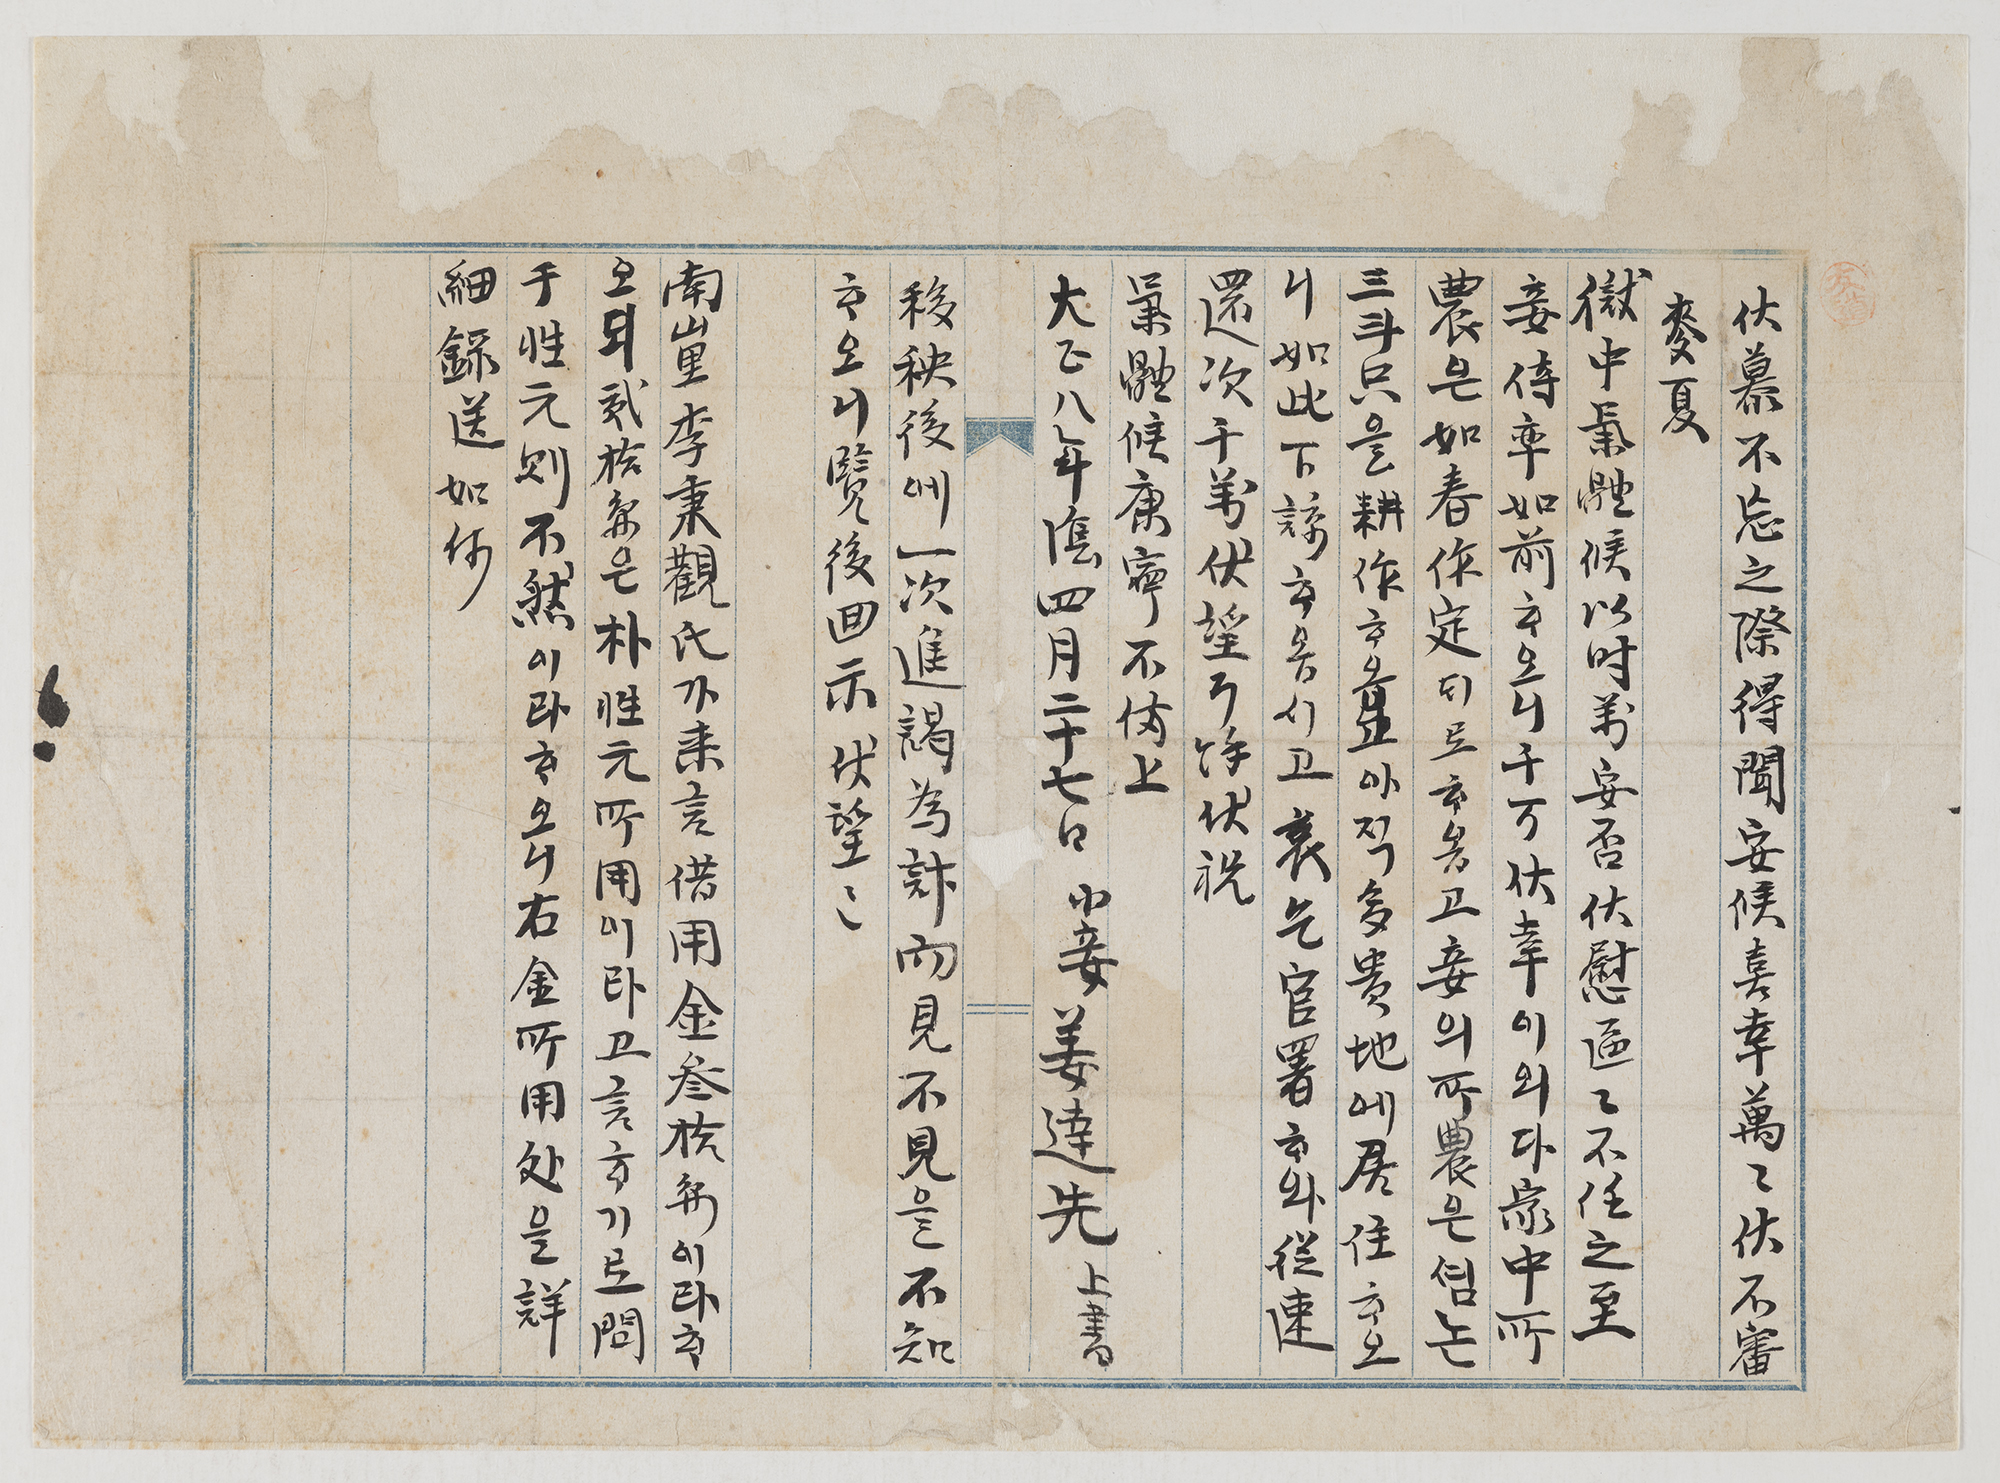 伏慕不忘之際得聞安候喜幸萬〻伏不審
麥夏
獄中氣體候以時萬安否伏慰區〻不任之至
妾侍率如前ᄒᆞ오니千万伏幸이외다家中所
農은如春作定되로ᄒᆞ옵고妾의所農은섬논
三斗只을耕作ᄒᆞ읍고아직多貴地에居住ᄒᆞ오
니如此下諒ᄒᆞ옵시고哀乞官署ᄒᆞ와從速
還次千萬伏望耳餘伏祝
氣體候康寧不備上
大正八年陰四月二十七日 小妾姜達先 上書
移秧後에一次進謁為計而見不見을不知
ᄒᆞ오니覽後回示伏望〻
南山里李秉觀氏가来言借用金叁拾円이라ᄒᆞ
오되貳拾円은朴性元所用이라고言ᄒᆞ기로問
于性元則不然이라ᄒᆞ오니右金所用処을詳
細錄送如何